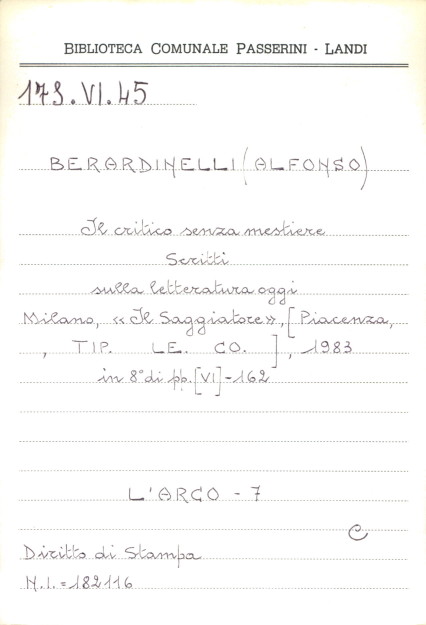 BIBLIOTECA COMUNALE PASSERINI - LANDI
173.VI.45
BERARDINELLI (ALFONSO)
Il critico senza mestiere
Scritti
sulla letteratura oggi
Milano, «Il Saggiatore», [Piacenza,
, TIP. LE. CO. ], 1983
in 8° di pp. [VI] - 162
L'ARCO - 7
C
Diritto di Stampa
N.I. = 182116